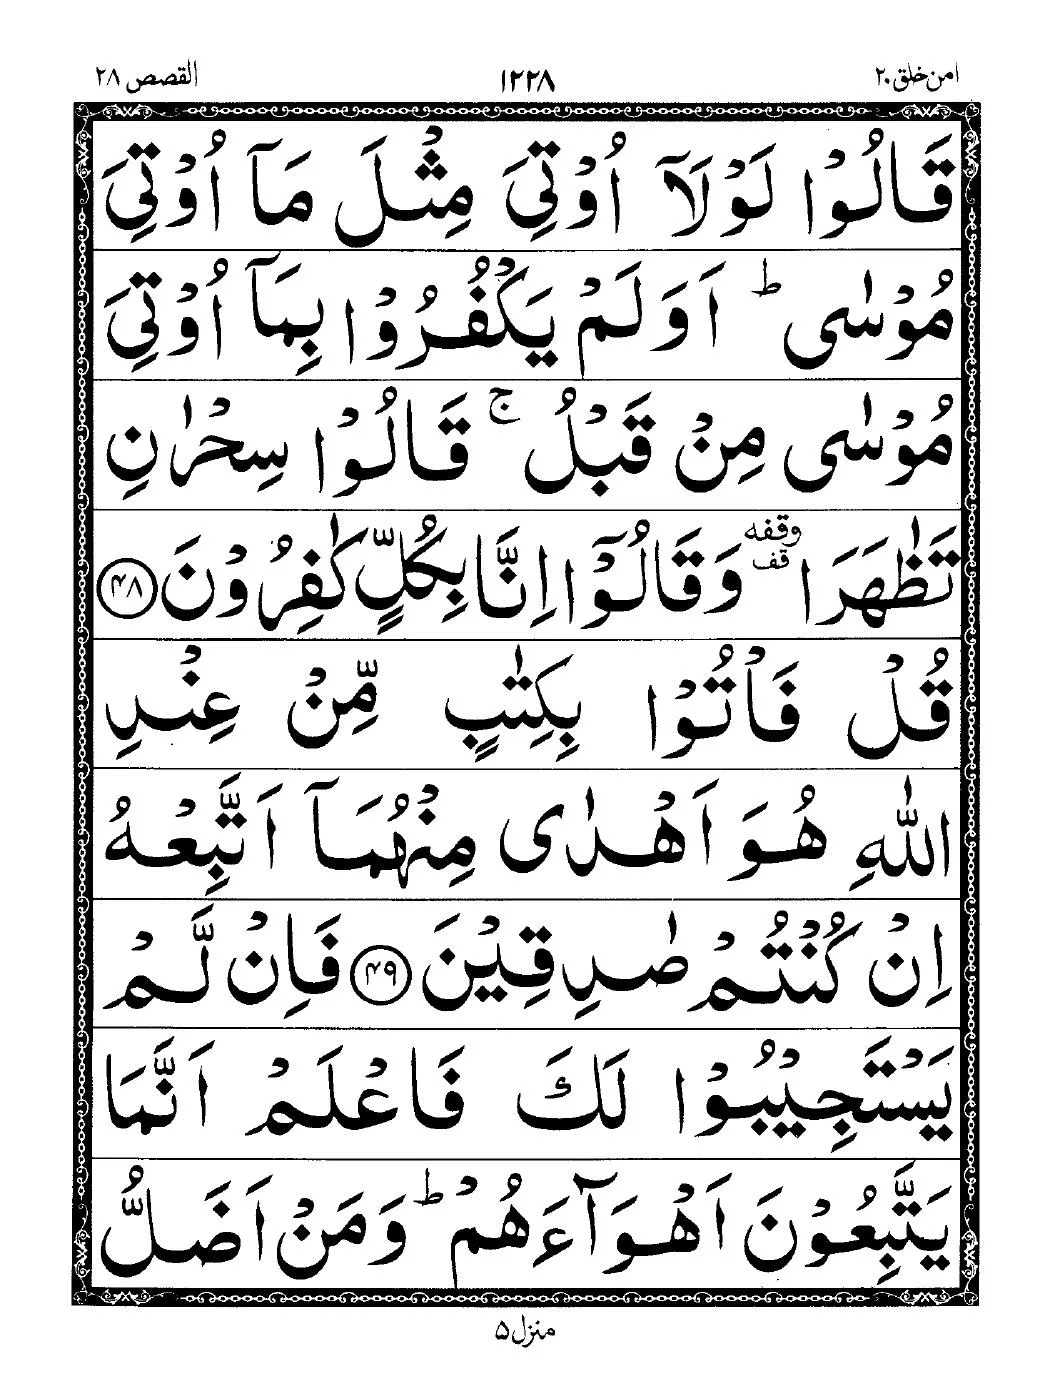 امن خلق ۲۰ ۱۲۲۸ القصص ۲۸
قَالُوْا لَوْلَاۤ اُوْتِیَ مِثْلَ مَاۤ اُوْتِیَ
مُوْسٰی ؕ اَوَلَمْ یَكْفُرُوْا بِمَاۤ اُوْتِیَ
مُوْسٰی مِنْ قَبْلُ ۚ قَالُوْا سِحْرٰنِ
تَظٰهَرَا وقفه قف وَقَالُوْۤا اِنَّا بِكُلٍّ كٰفِرُوْنَ ﴿۴۸﴾
قُلْ فَاْتُوْا بِكِتٰبٍ مِّنْ عِنْدِ
اللّٰهِ هُوَ اَهْدٰی مِنْهُمَاۤ اَتَّبِعْهُ
اِنْ كُنْتُمْ صٰدِقِیْنَ ﴿۴۹﴾ فَاِنْ لَّمْ
یَسْتَجِیْبُوْا لَكَ فَاعْلَمْ اَنَّمَا
یَتَّبِعُوْنَ اَهْوَآءَهُمْ ؕ وَمَنْ اَضَلُّ
منزل ۵